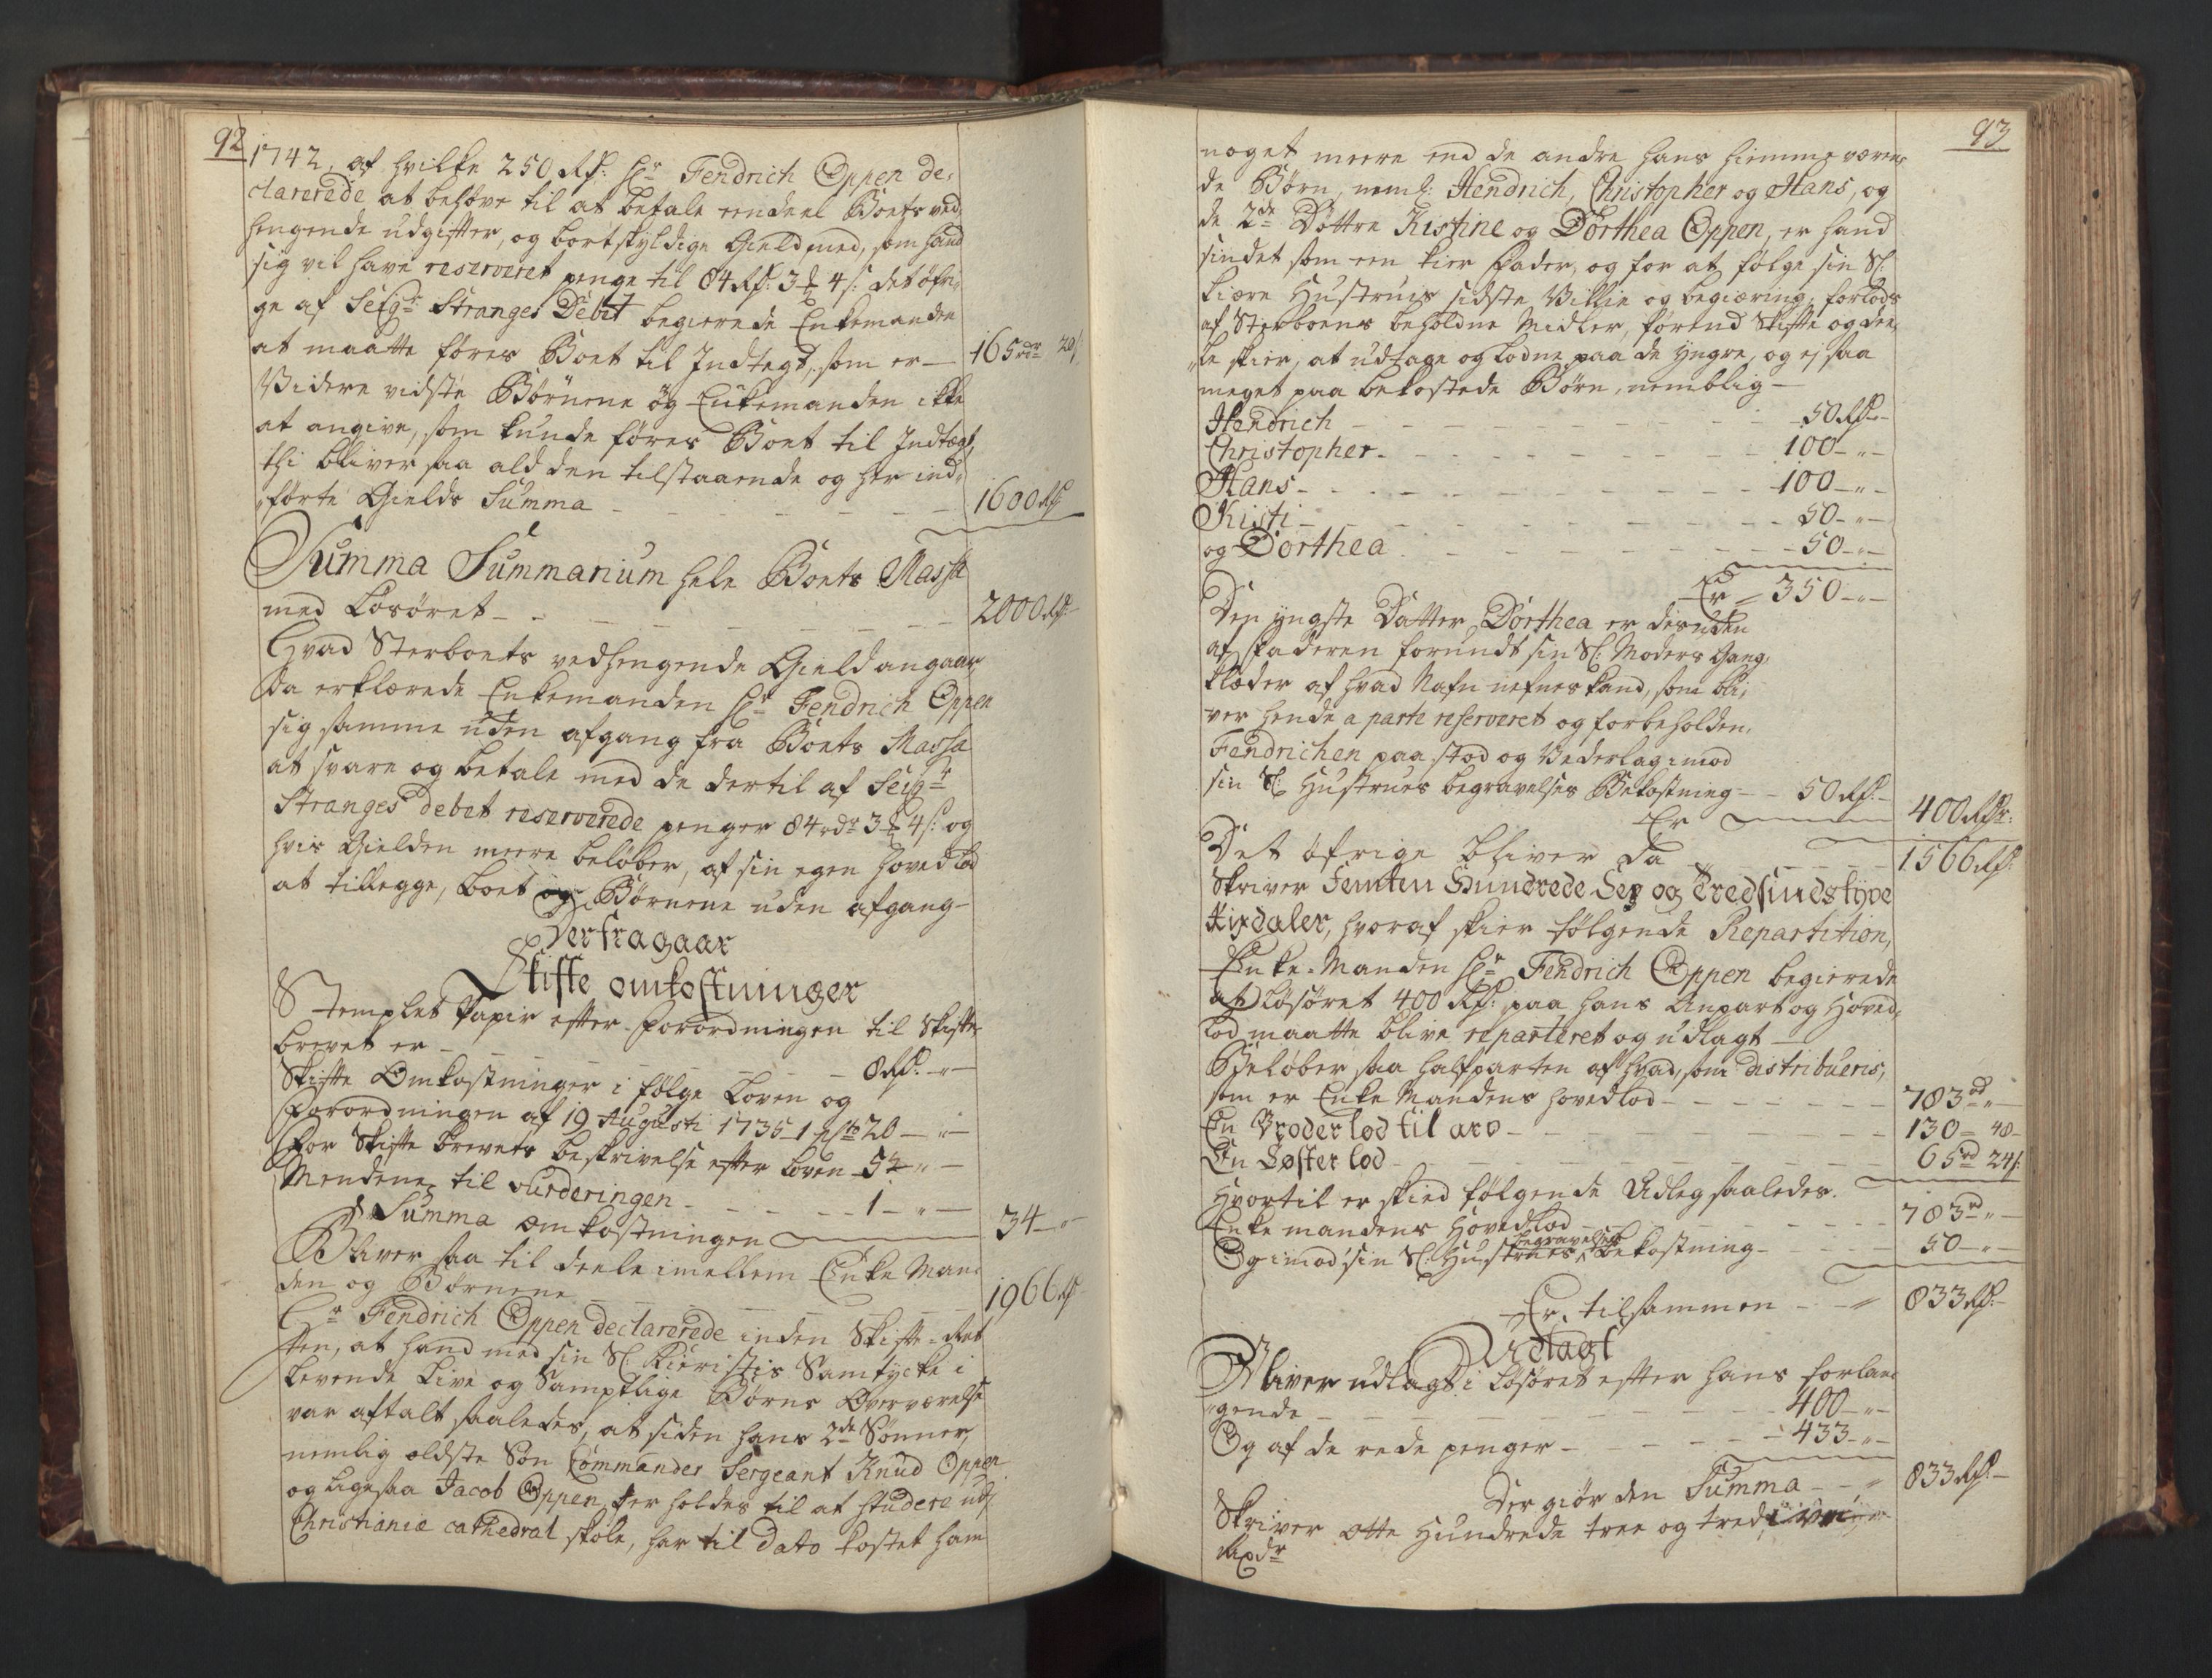 92
1742, af hvilke 250 Rd: Hr Fendrich Oppen de-
clarerede at behøve til at betale eendeel Boets ved
hengende udgifter, og bortskyldige Gield med, som hand
sig vil have reserveret penge til 84 Rd: 3 ₰ 4 s: det øfri-
ge af Seigr Stranges Debit begierede Enkemanden
at maatte føres Boet til Indtegt, som er — 165 rdr 20 s:
Videre vidste Børnene og Enkemanden ikke
at angive, som kunde føres Boet til Indtegt,
thi bliver saa ald den tilstaaende og her ind-
førte Gields Summa — 1600 Rd
Summa Summarium hele Boets Massa
med Løsøret — 2000 Rd:
Hvad Sterboets vedhengende Gield angaar
Da erklærede Enkemanden Hr Fendrich Oppen
sig samme uden afgang fra Boets Massa
at svare og betale med de dertil af Seigr
Stranges debet reserverede penger 84 rdr 3 ₰ 4 s: og
hvis Gielden meere beløber, af sin egen hoved lod
at tillegge, boet og Børnene uden afgang —
Derfra gaar
Skifte omkostninger
Stemplet Papir efter Forordningen til Skifte
brevet er — 8 Rd. „ —
Skifte Omkostninger i følge Loven og
Forordningen af 19 Augusti 1735 1 pCto 20 — „ —
For Skifte brevets beskrivelse efter loven 5 „ —
Mendene til vurderingen — 1 — „ —
Summa omkostningen — 34 — „
Bliver saa til deele imellem Enke Man-
den og Børnene — 1966 Rd
Hr Fendrich Oppen declarerede inden Skifte-Ret
ten, at hand med sin Sl: Kieristes Samtycke i
levende Live og Samptlige Børns Overværelse
var aftalt saaledes, at siden hans 2de Sønner,
nemlig eldste Søn Commander Sergeant Knud Oppen
og ligesaa Jacob Oppen, der holdes til at studere udj
Christianiæ cathedral skole, har til dato kostet ham
93
noget meere end de andre hans hiemmeværen-
de Børn, neml: Hendrich, Christopher og Hans, og
de 2de Døttre Kistine og Dorthea Oppen, er hand
sindet som een kier Fader, og for at følge sin Sl:
kiære Hustrues sidste Villie og begiæring, forlods
af Sterboens beholdne Midler, førend Skifte og dee-
le skier, at udtage og lodne paa de yngre, og ej saa
meget paa bekostede Børn, nemblig —
Hendrich — 50 Rd. —
Christopher — 100 — „ —
Hans — 100 — „ —
Kisti — 50 — „ —
og Dorthea — 50 — „ —
Er — 350 — „ —
Den yngste Datter Dorthea er desuden
af Faderen forundt sin Sl: Moders Gang-
klæder af hvad Nafn nefnes kand, som bli-
ver hende a parte reserveret og forbeholden.
Fendrichen paa stod og Vederlag imod
sin Sl: Hustrues begravelses Bekostning — 50 Rd. —
Er — 400 Rdr:
Det øfrige bliver da — 1566 Rd:
Skriver Femten Hundrede Sex og Tredsindstyve
Rixdaler, hvoraf skier følgende Repartition,
Enke-Manden Hr Fendrich Oppen begierede
at Løsøret 400 Rd: paa hans Anpart og Hoved-
lod maatte blive reparteret og udlagt —
Beløber saa halfparten af hvad, som distribueris,
som er Enke Mandens hovedlod — 783 rd „ —
En Broder lod til arv — 130 — 48 —
En Søster lod — 65 rd 24 s:
Hvortil er skied følgende Udleg saaledes.
Enke mandens Hovedlod — 783 rd „ —
Og imod sin Sl: Hustrues begravelses bekostning — 50 — „ —
Er tilsammen — 833 Rd. —
Udlagt
Bliver udlagt i løsøret efter hans forlan-
gende — 400 — „ —
Og af de rede penger — 433 — „ —
Der giør den Summa — 833 Rd. —
Skriver otte Hundrede tree og tredive
Rixdr